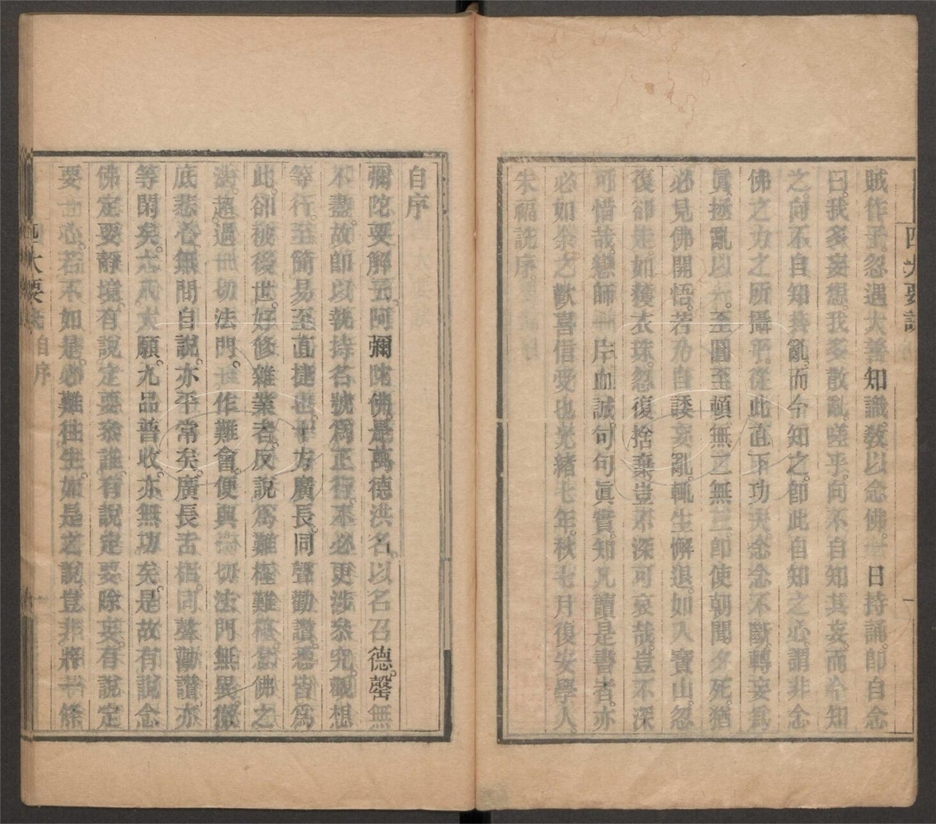 賊作子。忽遇大善知識。教以念佛。一日持誦。卽自念
曰。我多妄想。我多散亂。嗟乎。向不自知其妄。而今知
之。向不自知其亂。而今知之。卽此自知之心。謂非念
佛之力之所攝乎。從此直下功夫。念念不斷。轉妄爲
眞。拯亂以一。至圓至頓。無二無三。卽使朝聞夕死。猶
必見佛開悟。若乃自諉妄亂。輒生懈退。如入寶山。忽
復卻走。如獲衣珠。忽復捨棄。豈不深可哀哉。豈不深
可惜哉。戀師一片血誠。句句眞實。知凡讀是書者。亦
必如余之歡喜信受也。光緒七年。秋七月。復安學人
朱福詵序
自序
彌陀要解云。阿彌陀佛。是萬德洪名。以名召德。罄無
不盡。故卽以執持名號爲正行。不必更涉參究觀想
等行。至簡易。至直捷也。十方廣長。同聲勸讚。悉皆爲
此。卻被後世。好修雜業者。反說爲難極難極。念佛之
法。超過一切法門。 作難會。便與一切法門無異。徹
底悲心。無問自說。亦平常矣。廣長舌相。同聲勸讚。亦
等閑矣。六八大願。九品普收。亦無功矣。是故有說念
佛定要靜境。有說定要參誰。有說定要除妄。有說定
要一心。若不如是。必難往生。如是之說。豈非將 條
四大要訣 自序 一